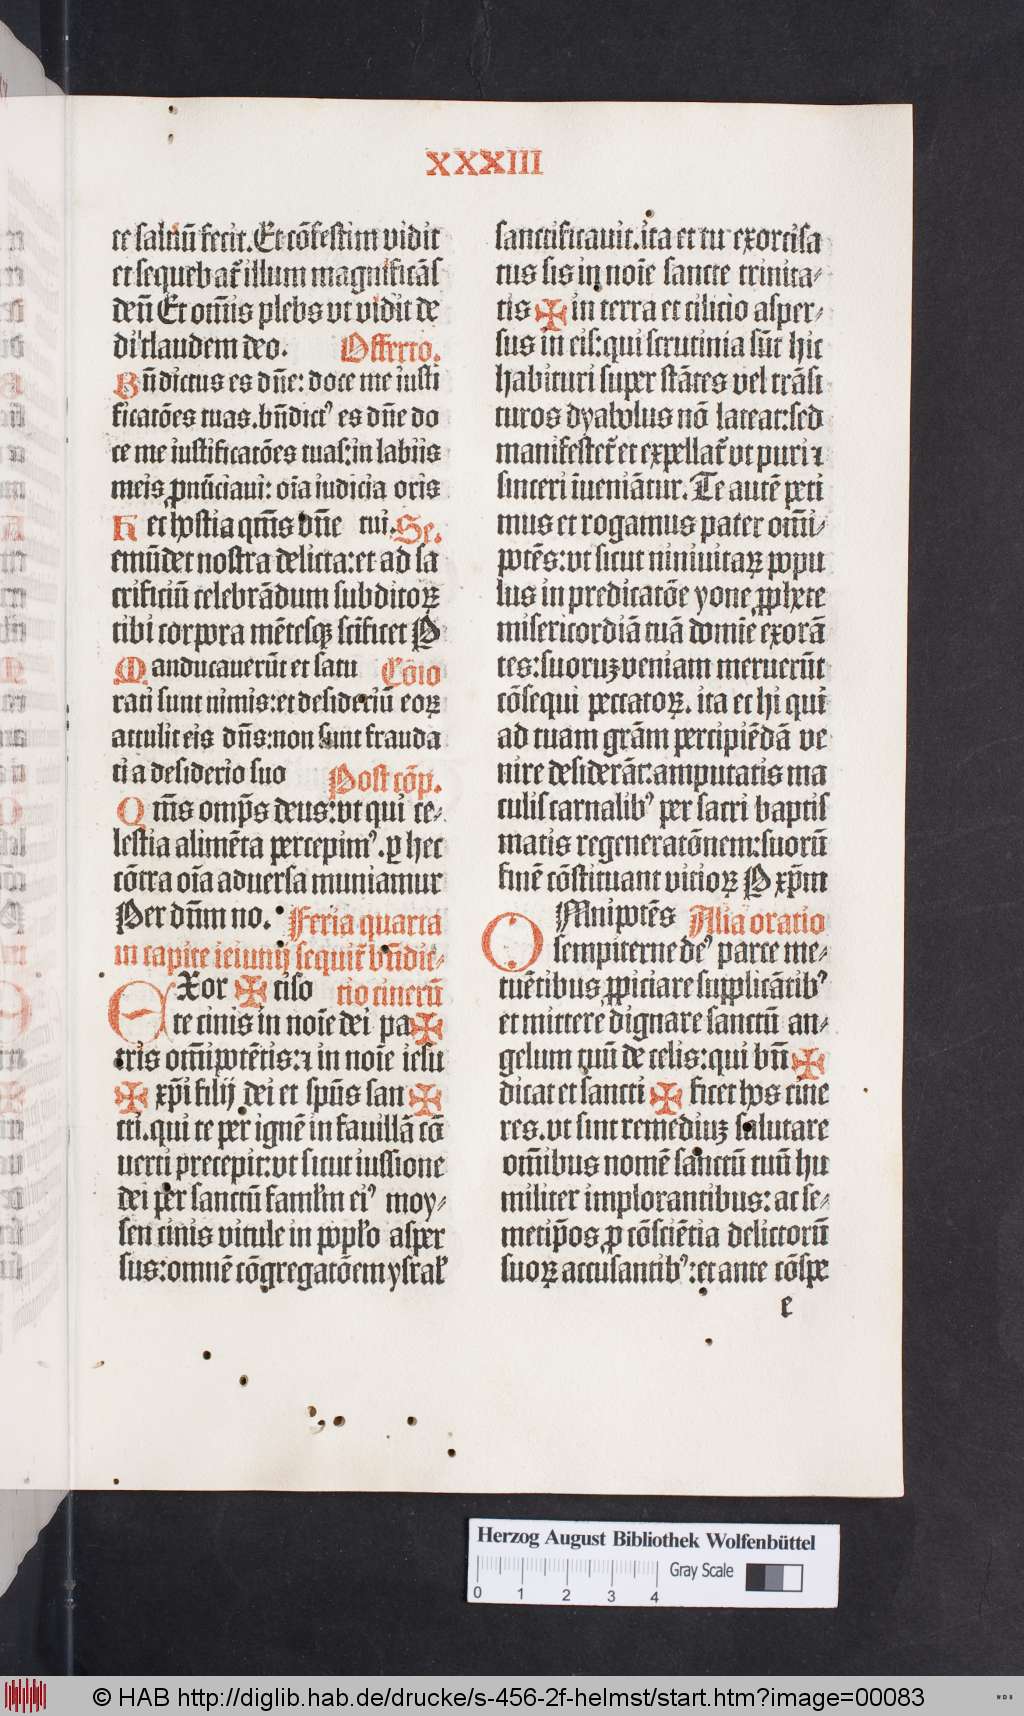 XXXIII
te saluū fecit. Et cōfestim vidit
et sequebat᷑ illum magnificās
deū Et om̄is plebs vt vidit de
dit laudem deo. Offerto.
Bn̄dictus es dn̄e: doce me iusti
ficatōes tuas. bn̄dictꝰ es dn̄e do
ce me iustificatōes tuas: in labiis
meis ꝓnūciaui: oīa iudicia oris
Hec hostia qm̄s dn̄e tui. Se.
emūdet nostra delicta: et ad sa
crificiū celebrādum subditoꝝ
tibi corpora mētesqꝫ scīficet P
Manducauerūt et satu Cōio
rati sunt nimis: et desideriū eoꝝ
attulit eis dn̄s: non sunt frauda
ti a desiderio suo Post cōp.
Qm̄s omp̄s deus: vt qui ce⸗
lestia alimēta percepimꝰ. ꝑ hec
cōtra oīa aduersa muniamur
Per dn̄m no. Feria quarta
in capite ieiunij sequit᷑ bn̄dic⸗
EXor ✠ ciso tio cinerū
te cinis in noīe dei pa ✠
tris om̄ipotētis: ⁊ in noīe iesu
✠ xp̄i filij dei et spūs san ✠
cti. qui te per ignē in fauillā cō
uerti precepit: vt sicut iussione
dei per sanctū famľm eiꝰ moy⸗
sen cinis vitule in popľo asper
sus: omnē cōgregatōem ysraľ
sanctificauit. ita et tu exorcisa
tus sis in noīe sancte trinita⸗
tis ✠ in terra et cilitio asper⸗
sus in eis: qui scrutinia sūt hic
habituri super stātes vel trāsi
turos dyabolus nō lateat: sed
manifestet᷑ et expellat᷑ vt puri ⁊
sinceri īueniātur. Te autē peti
mus et rogamus pater om̄i⸗
potēs: vt sicut niniuitaꝝ popu
lus in predicatōe yone ꝓphete
misericordiā tuā domīe exorā
tes: suoruꝫ veniam meruerūt
cōsequi peccatoꝝ. ita et hi qui
ad tuam grām percipiēdā ve
nire desiderāt: amputatis ma
culis carnalibꝰ per sacri baptis
matis regeneratōnem: suorū
finē cōstituant vicioꝝ P xp̄m
OMnipotēs Alia oratio
sempiterne deꝰ parce me⸗
tuētibus ꝓpiciare supplicātibꝰ
et mittere dignare sanctū an⸗
gelum tuū de celis: qui bn̄ ✠
dicat et sancti ✠ ficet hos cine
res. vt sint remediuꝫ salutare
om̄ibus nomē sanctū tuū hu
militer implorantibus: ac se⸗
metip̄os ꝓ cōsciētia delictorū
suoꝝ accusantibꝰ: et ante cōspe
e
Herzog August Bibliothek Wolfenbüttel
Gray Scale
0 1 2 3 4
© HAB http://diglib.hab.de/drucke/s-456-2f-helmst/start.htm?image=00083